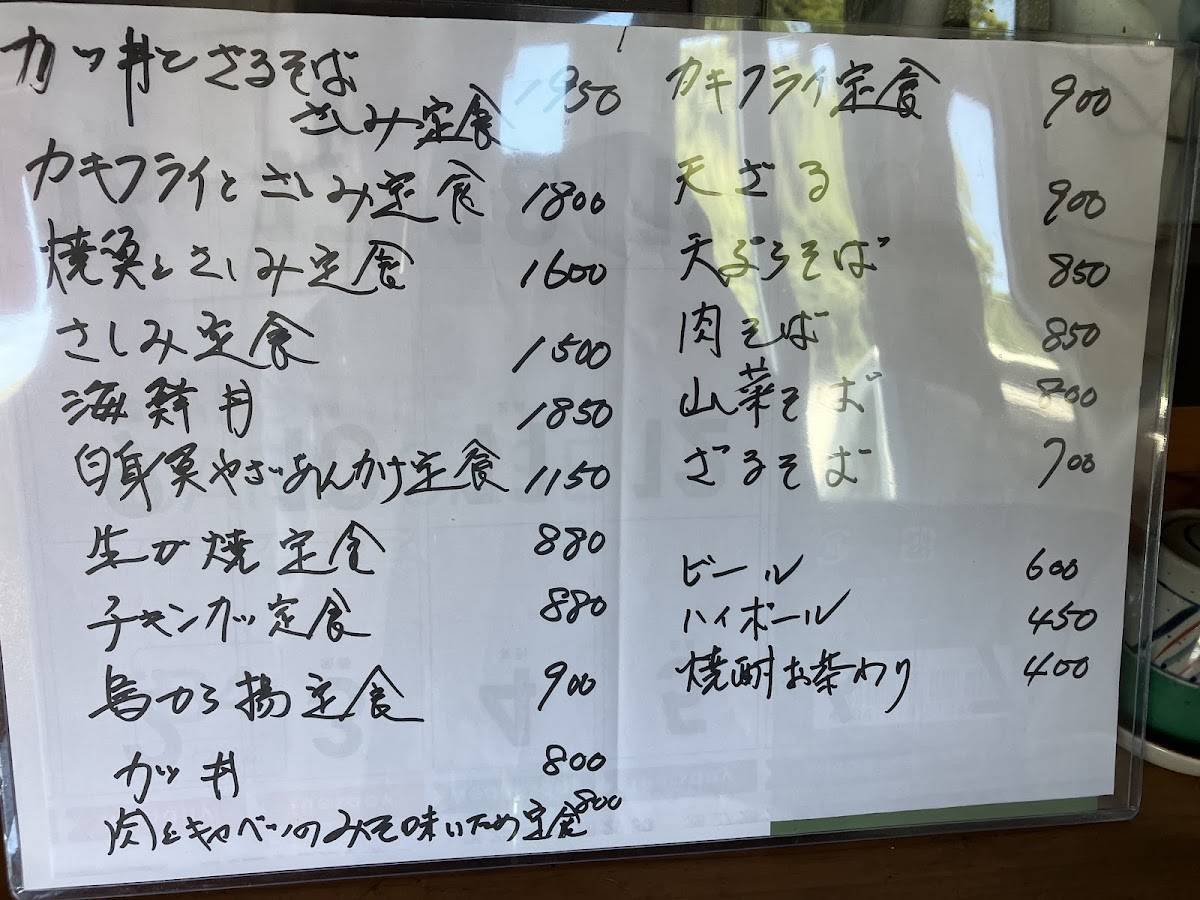 カツ丼とざるそば
さしみ定食 1950
カキフライとさしみ定食 1800
焼魚とさしみ定食 1600
さしみ定食 1500
海鮮丼 1850
白身魚やさいあんかけ定食 1150
生が焼定食 880
チキンカツ定食 880
鳥から揚定食 900
カツ丼 800
肉とキャベツのみそ味いため定食 800
カキフライ定食 900
天ざる 900
天ぷらそば 850
肉そば 850
山菜そば 800
ざるそば 700
ビール 600
ハイボール 450
焼酎お茶わり 400